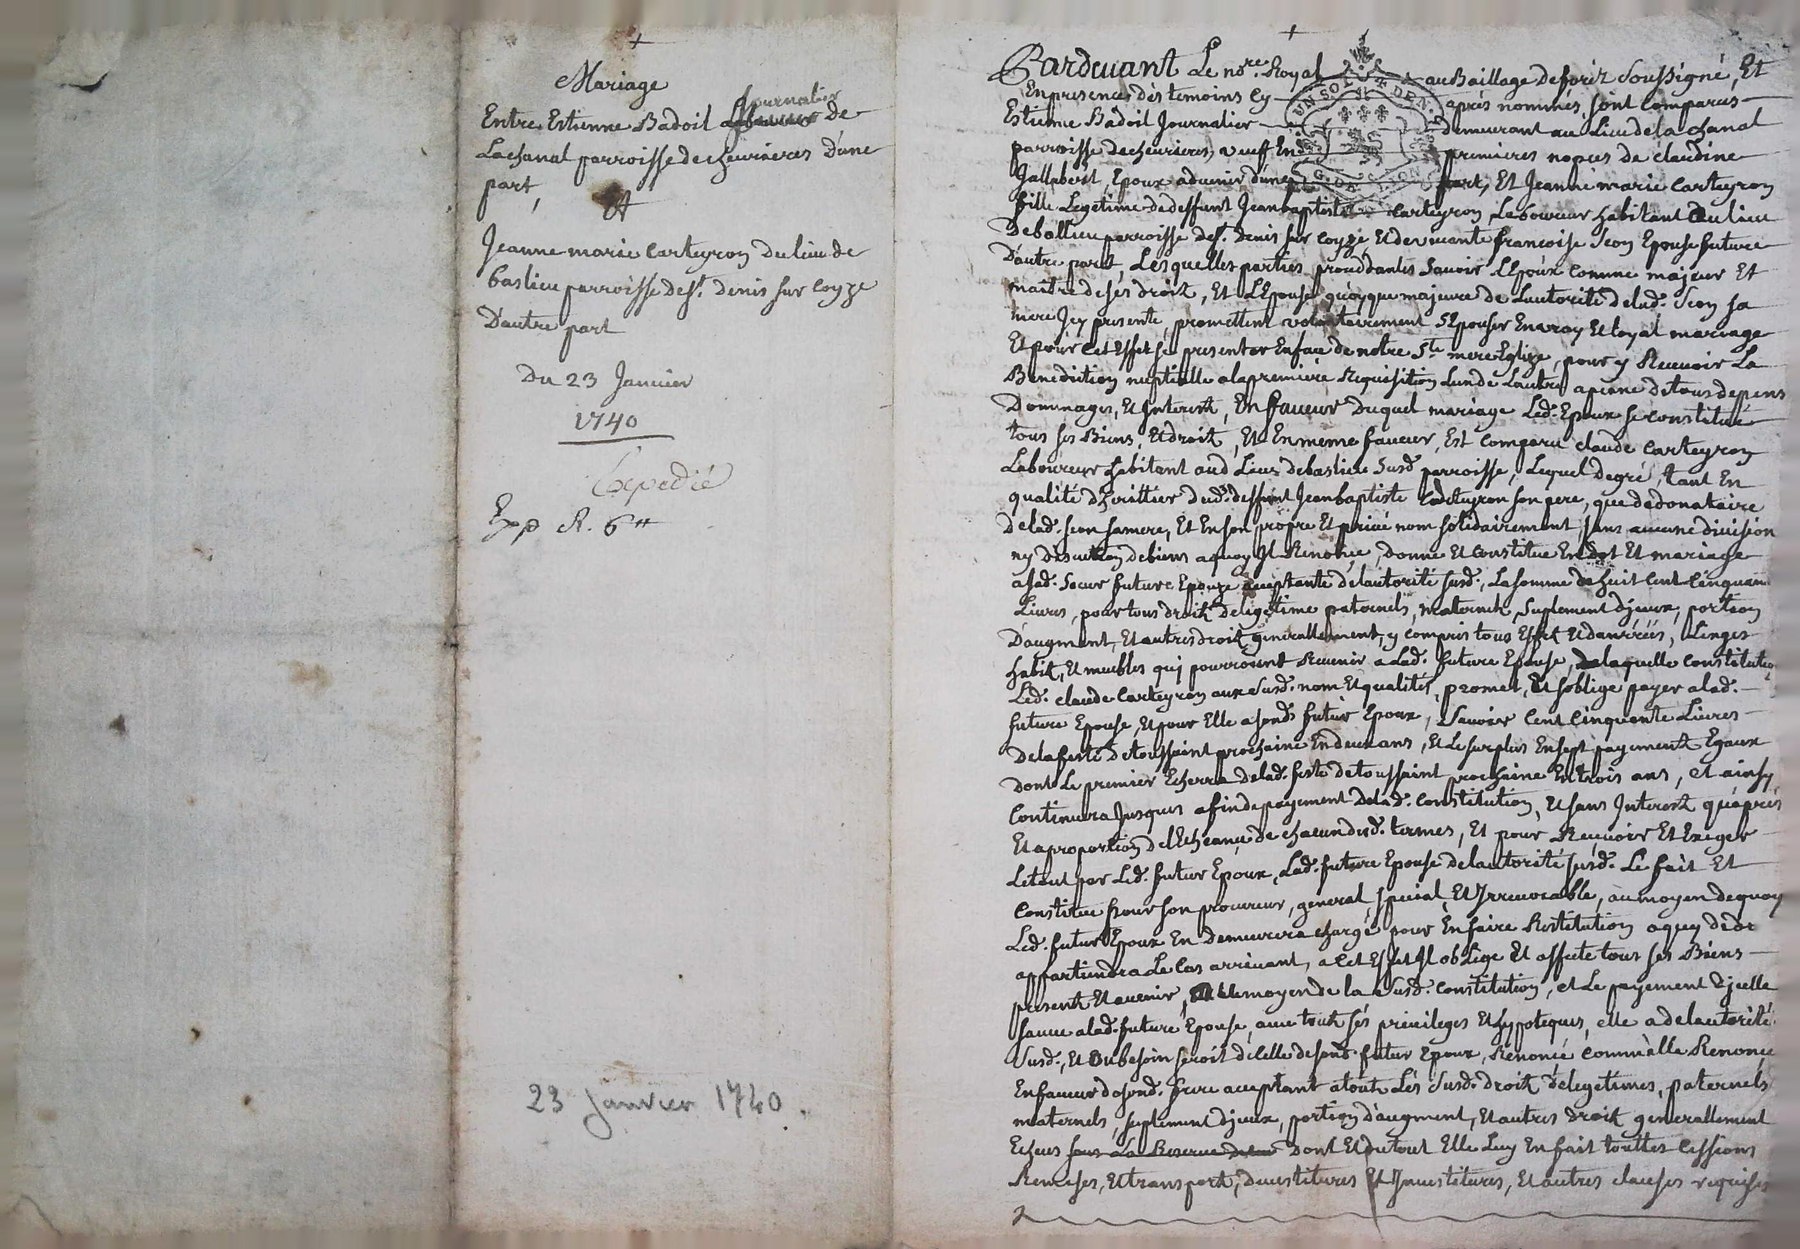 Mariage
Entre Estienne Badoil Journalier de
Lachanal parroisse de chevrieres D'une
part,
Et
Jeanne marie Carteyron du lieu de
baslieu parroisse de St. denis sur Coyze
D'autre part
Du 23 Janvier
1740
Expedié
Exp R. 6#
23 janvier 1740.
Pardevant Le nore. Royal au Baillage de forez Soussigné, Et
En presence des temoins Cy après nommés, sont Comparus
Estienne Badoil Journalier demeurant au Lieu de la chanal
parroisse de chevrieres, veuf En premieres nopces de claudine
Jallabert, Epoux advenir d'une part, Et Jeanne marie Carteyron
fille Legetime de deffunt Jean baptiste Carteyron Laboureur habitant du lieu
De ballieu parroisse de St. denis sur Coyze, Et de vivante francoise Seon Epouse future
D'autre part, Lesquelles parties proceddantes Savoir L'Epoux Comme majeur Et
maitre de ses droit, Et L'Epouse quoyque majeure de L'autorité de lad. Seon sa
mere Icy presente, promettent volontairement S'Epouser En vray Et loyal mariage
Et pour Cet Effet se presenter En face de notre Ste. mere Eglize, pour y Recevoir La
Benediction nuptialle a la premiere Requisition L'un de L'autre a peine de tous depens
Dommages, Et Interest, En faveur Duquel mariage Led. Epoux se constitue
tous ses Biens, Et droit, Et En meme faveur, Est Comparu claude Carteyron
Laboureur habitant aud Lieu de baslieu susd parroisse, Lequel De gré, tant En
qualité d'heritier dud. deffunt Jean baptiste Carteyron son pere, que de donataire
De lad. Seon sa mere, Et En son propre Et privé nom solidairement sans aucune division
ny discution de biens a quoy Il Renonce, donne Et Constitue En dot Et mariage
a sad. Soeur future Epouze acceptante de l'autorité susd., La somme de huit Cent Cinquante
Livres, pour tous droit de legetime paternels, maternels, suplement d'jceux, portion
D'augment, Et autres droit generallement, y compris tous Effet Et danrées, Linges
habit, Et meubles qui pourroient Revenir a Lad. future Epouse, De laquelle Constitution
Led. claude Carteyron aux Susd. nom Et qualités, promet, Et s'oblige payer a lad.
future Epouse, Et pour Elle a sond. futur Epoux, Savoir Cent Cinquante Livres
De la feste de toussaint prochaine En deux ans, Et Le surplus En sept payement Egaux
Dont Le premier Echerra de lad. feste de toussaint prochaine En trois ans, Et ainsy
Continuera Jusques a fin de payement de lad. Constitution, Et sans Interest qu'après
Et a proportion de l'Echeance de chacun desd. termes, Et pour Recevoir Et Exiger
Le tout par Led. futur Epoux, Lad. future Epouse de l'autorité susd. Le fait Et
Constitue pour son procureur, general, special, Et Irrevocable, au moyen de quoy
Led. futur Epoux En demeurera chargé pour En faire Restitution a quy de dr
appartiendra Le Cas arrivant, a Cet Effet Il oblige Et affecte tous ses Biens
present Et avenir, Et au moyen de la Susd. Constitution, et Le payement d'jcelle
sauve a lad. future Epouse, avec tout ses privileges Et hypoteques, elle a de l'autorité
Susd., Et ou besoin seroit de Celle de sond. futur Epoux, Renoncé Comme elle Renonce
En faveur de sond. frere acceptant a tout Les Susd. droit de legetimes, paternels
maternels, suplement d'jceux, portion d'augment, Et autres droit generallement
Echeus sans La Reserve Dont Et du tout Elle Luy En fait touttes Cessions
Remises, Et transport, devestitures Et Investitures, Et autres clauses requises